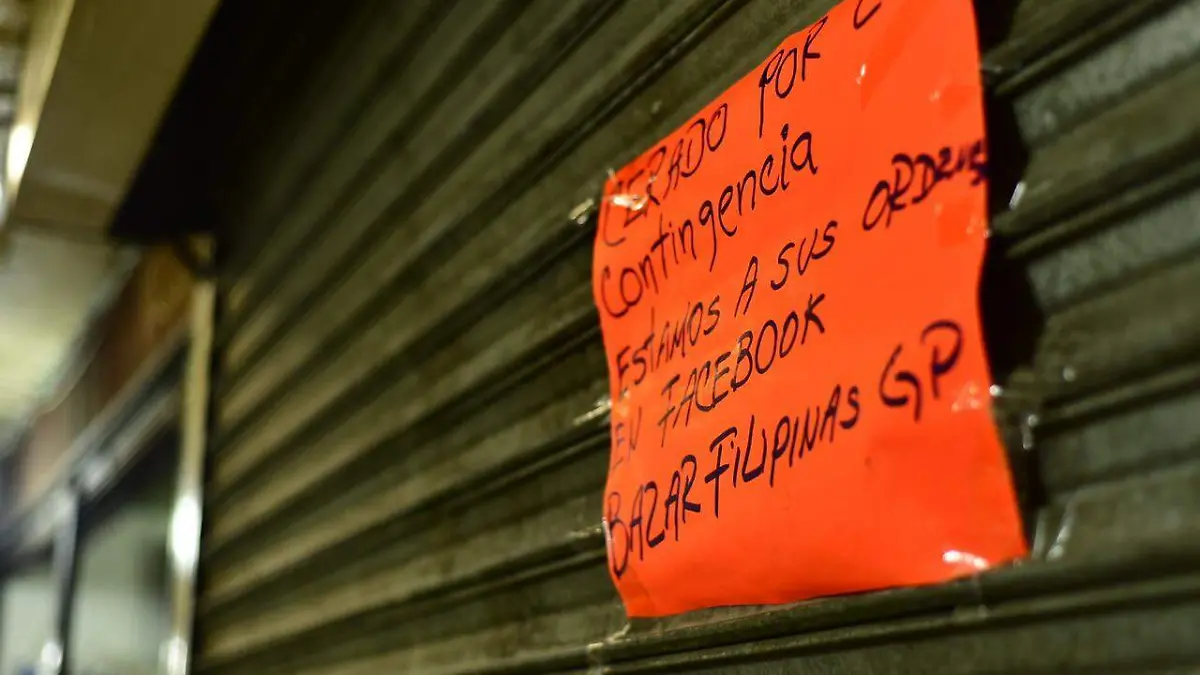 CERADO POR C
Contingencia
ESTAMOS A SUS ORDENES
EN FACEBOOK
BAZAR FILIPINAS GP